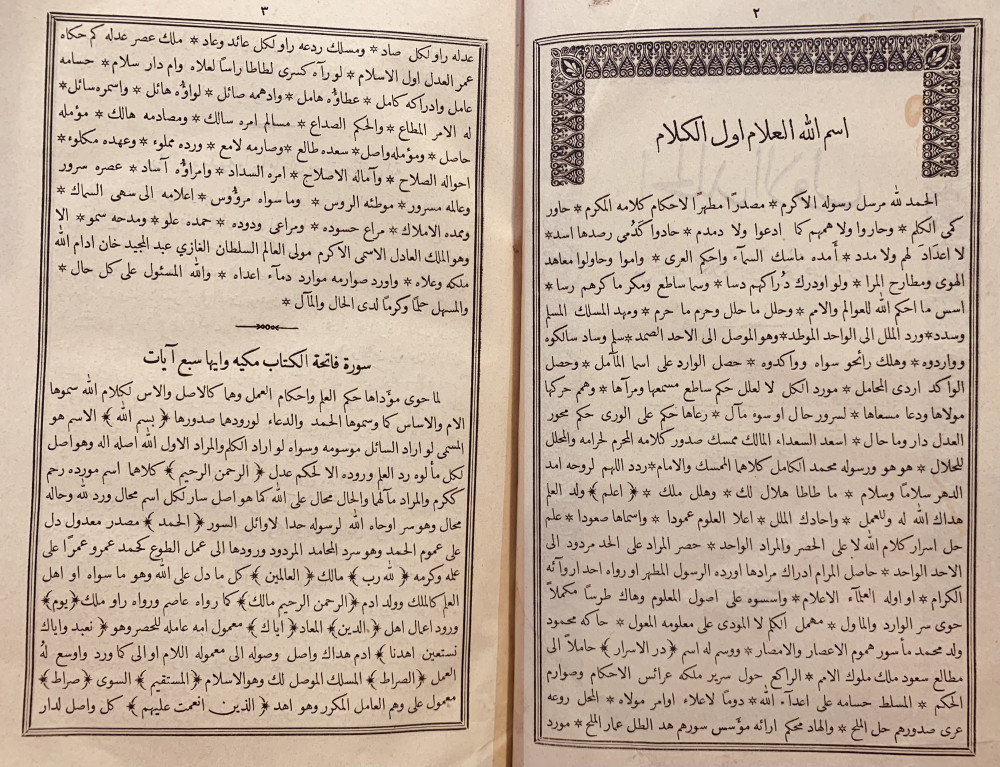 ٢
اسم الله العلام اول الكلام
الحمد لله مرسل رسوله الاكرم * مصدرًا مطهرًا لاحكام كلامه المكرم * حاور
كمى الكلم * وحاروا ولا همهم كما ادعوا ولا دمدم * حادوا كدمى رصدها اسد *
لا اعداد لهم ولا مدد * أمده ماسك السمآء واحكم العرى * واموا وحاولوا معاهد
الهوى ومطارح المرا * ولو اودرك دراكهم دسا * وسما ساطع ومكر ما كرهم رسا *
اسس ما احكم الله للعوالم والامم * وحلل ما حلل وحرم ما حرم * ومهد المسلك المسلم
وسدد * ورد الملل الى الواحد الموطد * وهو الموصل الى الاحد الصمد * سلم وساد سالكوه
وواردوه * وهلك رائحو سواه وواكدوه * حصل الوارد على اسما المآمل * وحصل
الواكد اردى المحامل * مورد الكل لا لعلل حكم ساطع مسمعها ومرآها * وهم حركها
مولاها ودعا مسعاها * لسرور حال او سوء مآل * رعاها حكم على الورى حكم محور
العدل دار وما حال * اسعد السعداء المالك ممسك صدور كلامه المحرم لحرامه والمحلل
للحلال * هو هو ورسوله محمد الكامل كلاهما الممسك والامام * ردد اللهم لروحه امد
الدهر سلامًا وسلام * ما طاطا هلال لك * وهلل ملك * ﴿ اعلم ﴾ ولد العلم
هداك الله له وللعمل * واحادك الملل * اعلا العلوم عمودا * واسماها صعودا * علم
حل اسرار كلام الله لا على الحصر والمراد الواحد * حصر المراد على الحد مردود الى
الاحد الواحد * حاصل المرام ادراك مرادها اورده الرسول المطهر او رواه احد اروآئه
الكرام * او اوله العلمآء الاعلام * واسسوه على اصول المعلوم وهاك طرسًا مكملاً
حوى سر الوارد والماول * مهمل الكلم لا المودى على معلومه المعول * حاكه محمود
ولد محمد مأسور هموم الاعصار والامصار * ووسم له اسم ﴿ در الاسرار ﴾ حاملاً الى
مطالع سعود ملك ملوك الامم * الراكع حول سرير ملكه عرائس الاحكام وصوارم
الحكم * المسلط حسامه على اعدآء الله * دومًا لاعلاء اوامر مولاه * المحل روعه
عرى صدورهم حل الملح * والهاد محكم ارائه مؤسس سورهم هد الطل عمار الملح * مورد
٣
عدله راو لكل صاد * ومسلك ردعه راو لكل عائد وعاد * ملك عصر عدله كم حكاه
عمر العدل اول الاسلام * لو رآه كسرى لطاطا راسا لعلاه وام دار سلام * حسامه
عامل وادراكه كامل * عطاؤه هامل * وادهمه صائل * لواؤه هائل * واسمره سائل *
له الامر المطاع * والحكم الصداع * مسالم امره سالك * ومصادمه هالك * مؤمله
حاصل * ومؤمله واصل * سعده طالع * وصارمه لامع * ورده مملوء * وعهده مكلوء *
احواله الصلاح * وآماله الاصلاح * امره السداد * وامراؤه آساد * عصره سرور
وعالمه مسرور * موطئه الروس * وما سواه مرؤوس * اعلامه الى سهى السماك *
وممده الاملاك * مراع حسوده * ومراعى ودوده * حمده علو * ومدحه سمو * الا
وهو الملك العادل الاسمى الاكرم مولى العالم السلطان الغازي عبد المجيد خان ادام الله
ملكه وعلاه * واورد صوارمه موارد دمآء اعداه * والله المسئول على كل حال *
والمسهل حلمًا وكرمًا لدى الحال والمآل *
سورة فاتحة الكتاب مكيه وايها سبع آيات
لما حوى مؤداها حكم العلم واحكام العمل وهما كالاصل والاس لكلام الله سموها
الام والاساس كما وسموها الحمد والدعاء لورودها صدورها ﴿ بسم الله ﴾ الاسم هو
المسمى لو اراد السائل موسومه وسواه لو اراد الكلم والمراد الاول الله أصله اله وهو اصل
لكل مألوه رد العلم وروده الا لحكم عدل ﴿ الرحمن الرحيم ﴾ كلاهما اسم مورده رحم
ككرم والمراد مآلهما والحال محال على الله كما هو اصل سار لكل اسم محال ورد لله وحاله
محال وهو سر اوحاه الله لرسوله حدا لاوائل السور ﴿ الحمد ﴾ مصدر معدول دل
على عموم الحمد وهو سرد المحامد المردود ورودها الى عمل الطوع كحمد عمرو عمرًا على
عمله وكرمه ﴿ لله رب ﴾ مالك ﴿ العالمين ﴾ كل ما دل على الله وهو ما سواه او اهل
العلم كالملك وولد ادم ﴿ الرحمن الرحيم مالك ﴾ كما رواه عاصم ورواه راو ملك ﴿ يوم ﴾
ورود اعمال اهل ﴿ الدين ﴾ المعاد ﴿ اياك ﴾ معمول امه عامله للحصر وهو ﴿ نعبد واياك
نستعين اهدنا ﴾ ادم هداك واصل وصوله الى معموله اللام او الى كما ورد واوسع له
العمل ﴿ الصراط ﴾ المسلك الموصل لك وهو الاسلام ﴿ المستقيم ﴾ السوى ﴿ صراط ﴾
معمول على وهم العامل المكرر وهو اهد ﴿ الذين انعمت عليهم ﴾ كل واصل لدار